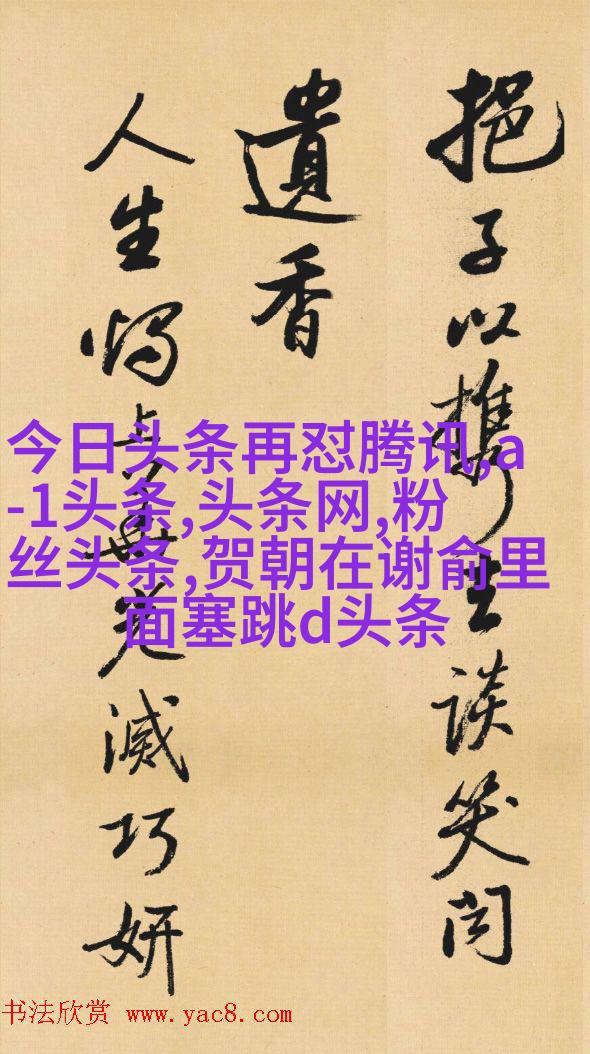 挹子以攜谈笑
遺香
人生滅巧妍
今日头条再怼腾讯,a
-1头条,头条网,粉
丝头条,贺朝在谢俞里
面塞跳d头条
书法欣赏 www.yac8.com